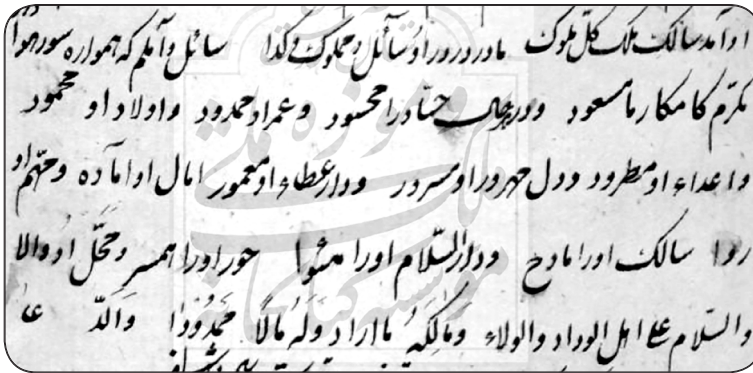 او آمد سالک ملک کل ملوک مادر دور او سائل و مملوک و گدا سائل و آملم که همواره سور هوا
مکرم کامکار ما مسعود و ورا حساد را محسود و عمر او ممدود و اولاد او محمود
و اعداء او مطرود و دل مهرور او مسرور و دار عطاء او معمور امال او اماده و مهم او
روا سالک او را مادح و دار السلام او را مثوا حور او را همسر و محل او والا
والسلام علی اهل الوداد والولاء و مالکه ما اراد وله مالا ممدودا والد